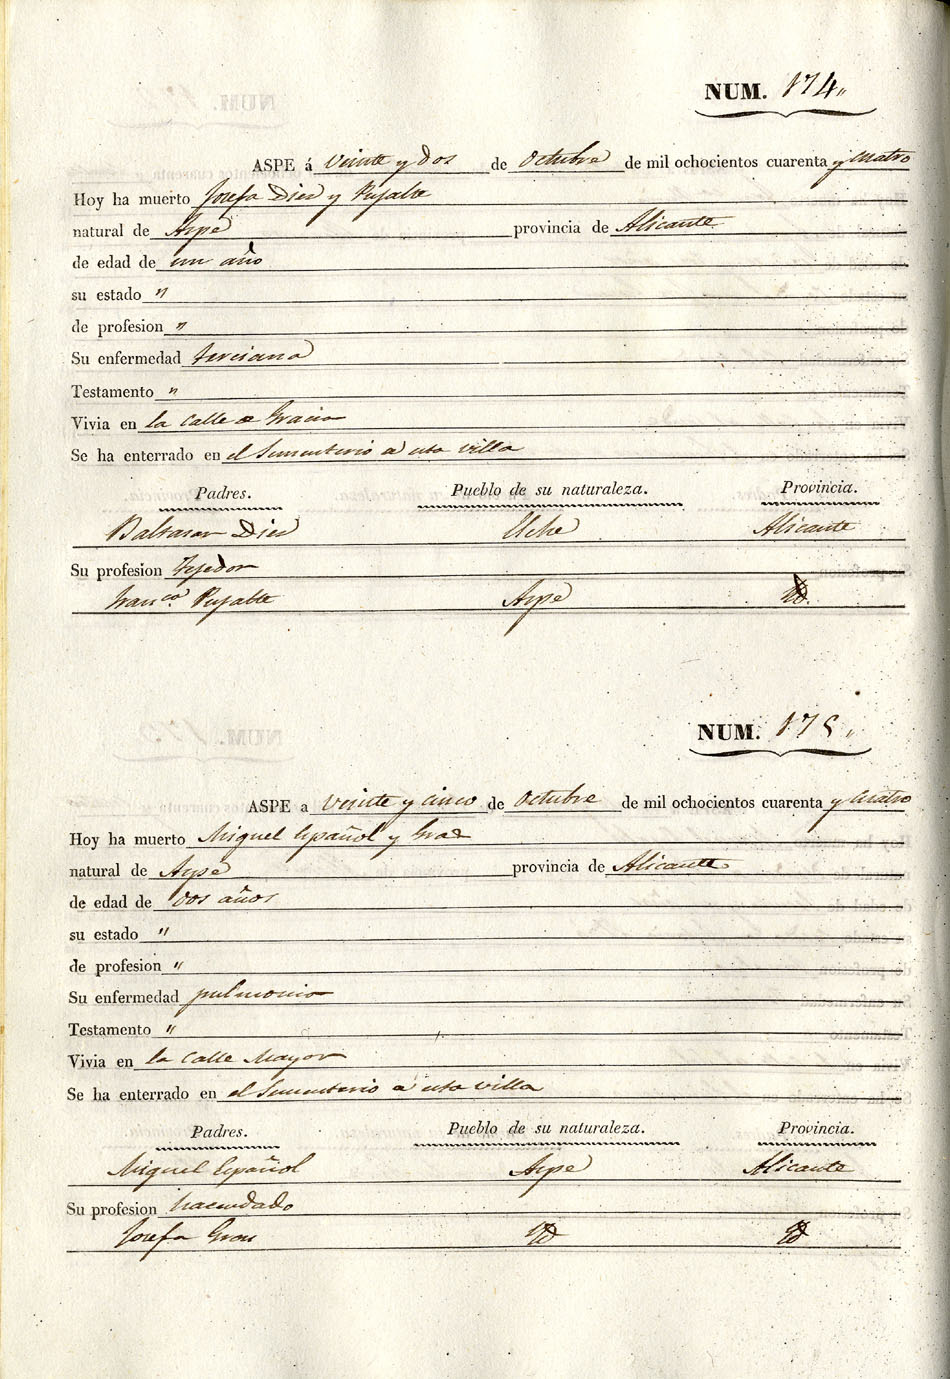 NUM. 174.
ASPE á veinte y dos de Octubre de mil ochocientos cuarenta y cuatro
Hoy ha muerto Josefa Dies y Pujalte
natural de Aspe provincia de Alicante
de edad de un año
su estado "
de profesion "
Su enfermedad terciana
Testamento "
Vivia en la calle de Gracia
Se ha enterrado en el Sementerio de esta villa
Padres. Pueblo de su naturaleza. Provincia.
Baltasar Dies Elche Alicante
Su profesion Tejedor
Franca. Pujalte Aspe Id.
NUM. 175.
ASPE a veinte y cinco de Octubre de mil ochocientos cuarenta y cuatro
Hoy ha muerto Miguel Español y
natural de Aspe provincia de Alicante
de edad de dos años
su estado "
de profesion "
Su enfermedad pulmonia
Testamento "
Vivia en la calle Mayor
Se ha enterrado en el Sementerio de esta villa
Padres. Pueblo de su naturaleza. Provincia.
Miguel Español Aspe Alicante
Su profesion hacendado
Josefa Id Id